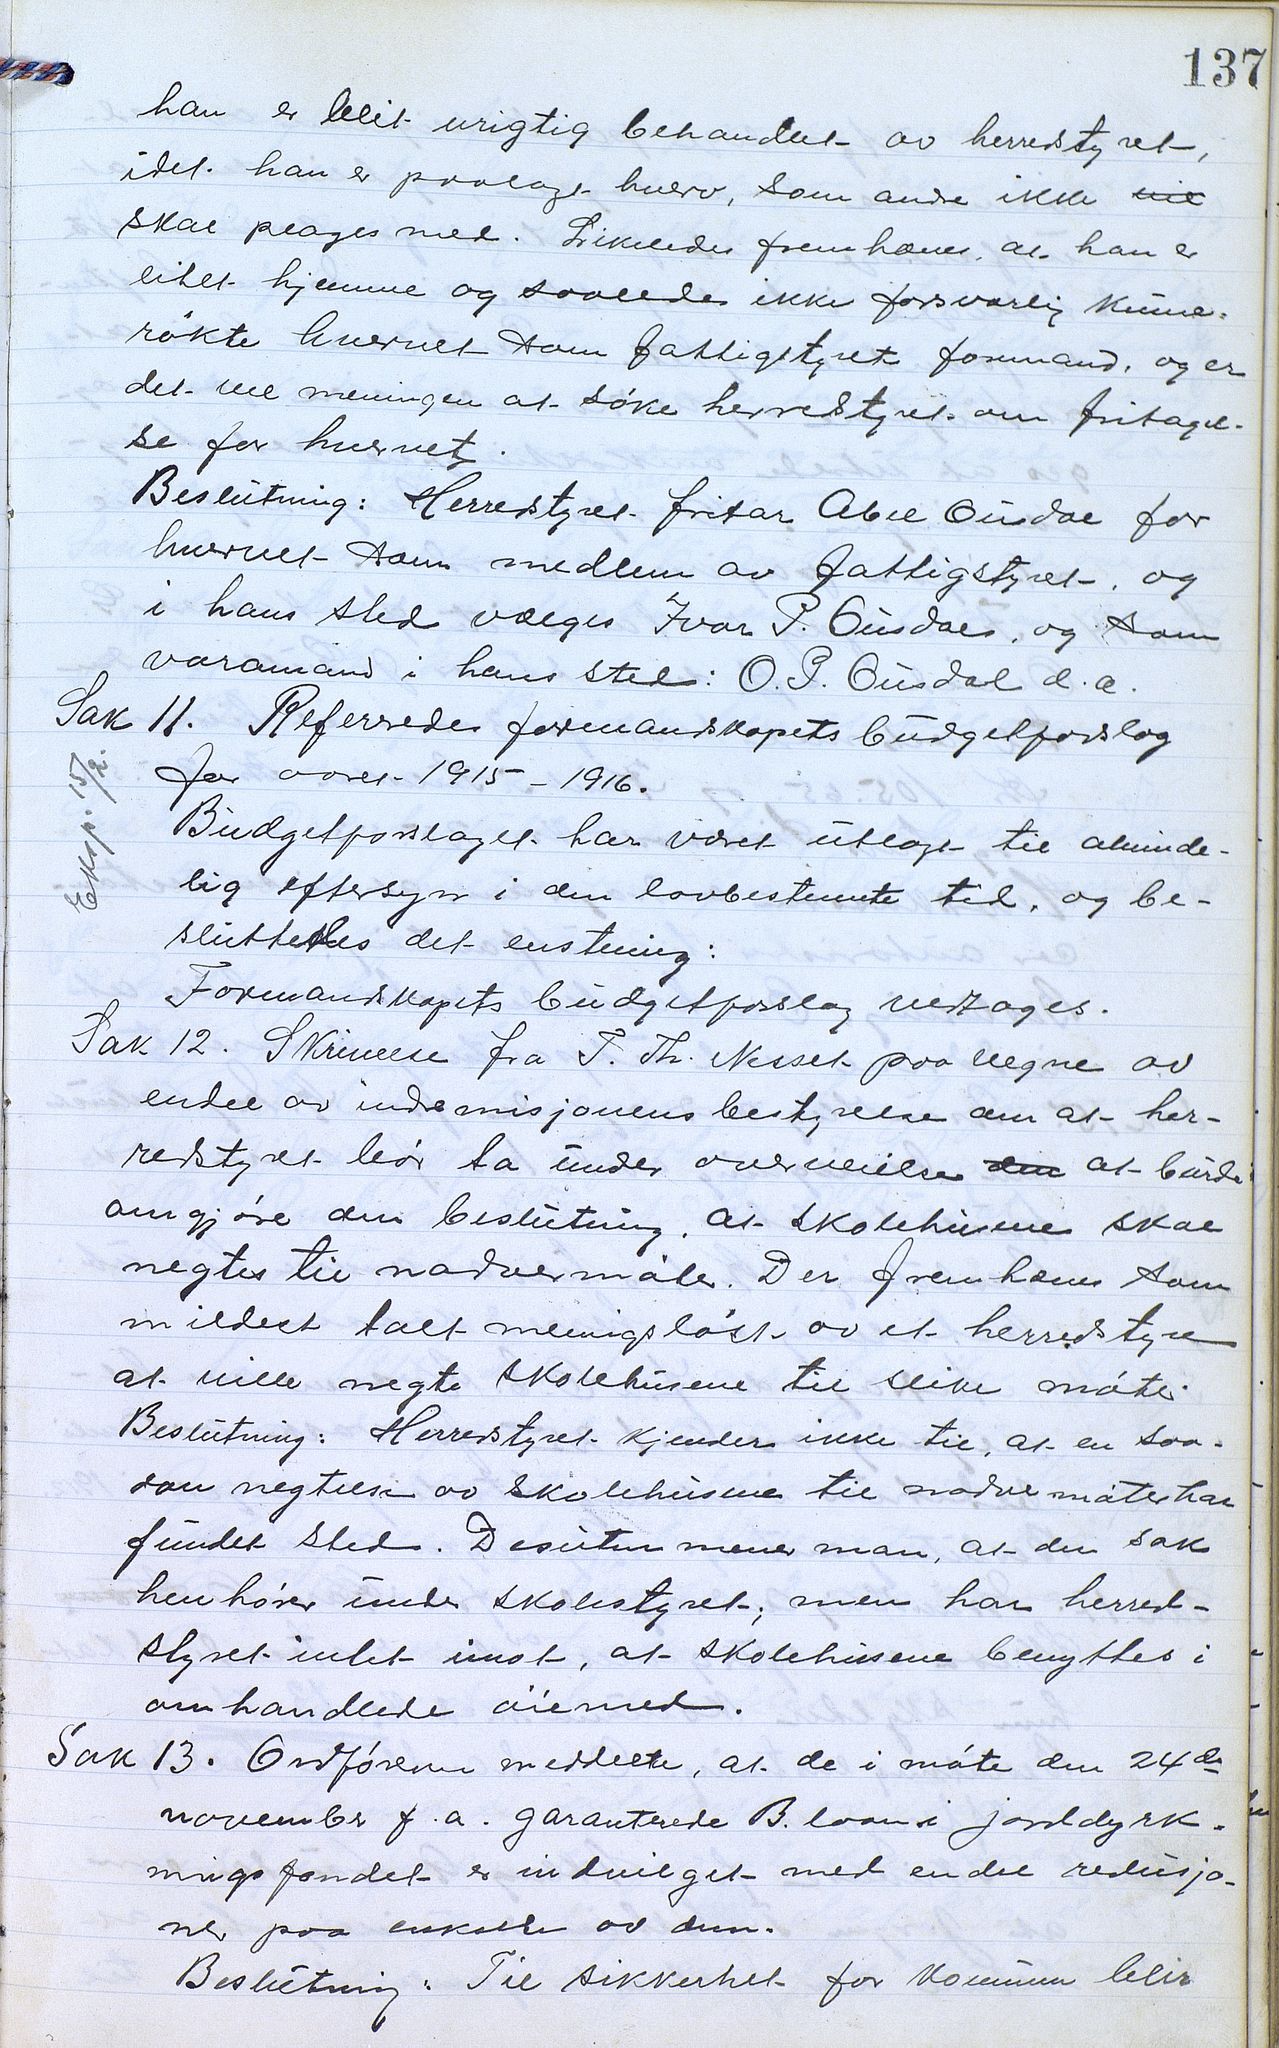 137
han er blit urigtig behandlet av herredstyret,
idet han er paalagt hverv, som andre ikke vil
skal plages med. Likeledes fremhæves, at han er
litet hjemme og saaledes ikke forsvarlig kunne
røkte hvervet som fattigstyrets formand, og er
det vel meningen at søke herredstyret om fritagel-
se for hvervet.
Beslutning: Herredstyret fritar Abel Ousdal for
hvervet som medlem av fattigstyret, og
i hans sted vælges Ivar P. Ousdal, og som
varamand i hans sted: O. P. Ousdal d.æ.
Sak 11. Referredes formandskapets budgetforslag
for aaret 1915-1916.
Eksp. 15/2.
Budgetforslaget har været utlagt til alminde-
lig eftersyn i den lovbestemte tid, og be-
sluttedes det enstemig:
Formandskapets budgetforslag vedtages.
Sak 12. Skrivelse fra T. Th. Nesset paa vegne av
endel av indremisjonens bestyrelse om at her-
redstyret bør ta under overveielse den at burde
omgjøre den beslutning, at skolehusene skal
negtes til nadvermøter. Der fremhæves som
mildest talt meningsløst av et herredstyre
at ville negte skolehusene til slike møter.
Beslutning: Herredstyret kjender ikke til, at en saa-
dan negtelse av skolehusene til nadvermøter har
fundet sted. Desuten mener man, at den sak
henhører under skolestyret; men har herred-
styret intet imot, at skolehusene benyttes i
omhandlede øiemed.
Sak 13. Ordføreren meddelte, at de i møte den 24de
november f.a. garanterede B. laan i jorddyrk-
ningsfondet er indvilget med endel reduksjo-
ner paa enkelte av dem.
Beslutning: Til sikkerhet for kommunen blir